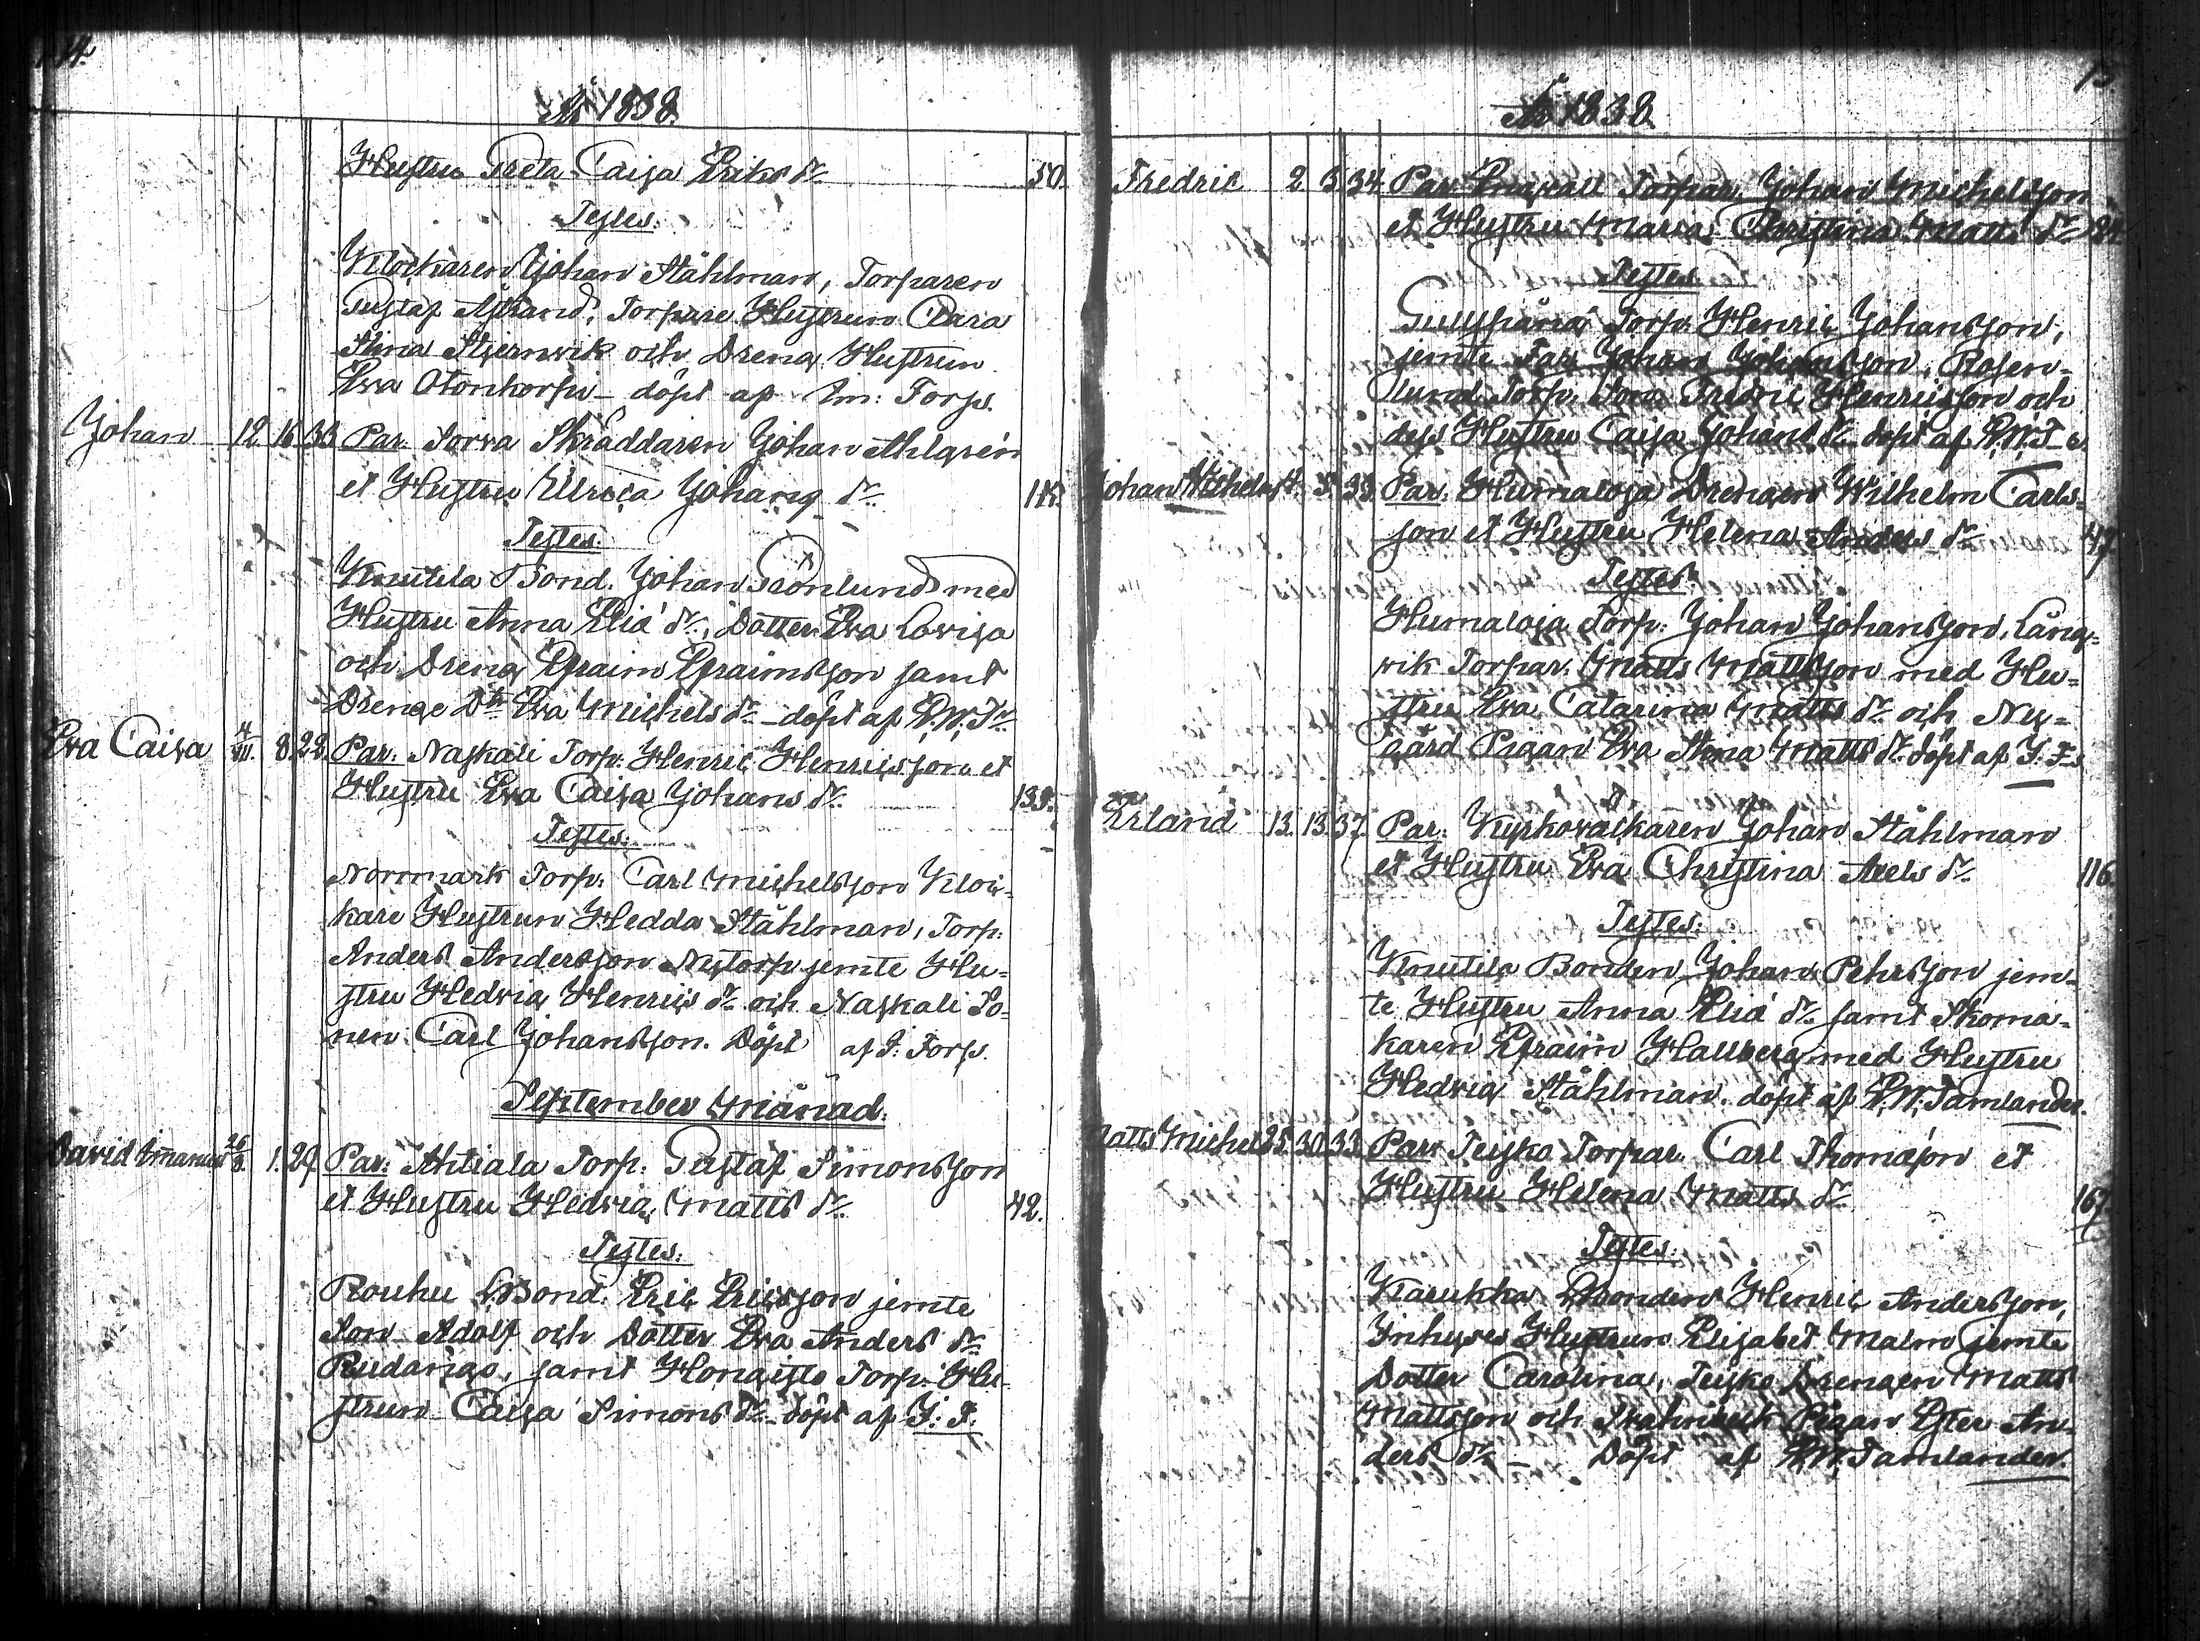 År 1838.
Hustru Greta Caisa Eriks dr. 50.
Testes.
Klockaren Johan Ståhlman, Torparen
Gustaf Åstrand, Torpare Hustrun Clara
Stina Stjernvik och Dreng Hustrun
Eva Otonkorpi – döpt af Im: Torp.
Johan 12. 16. 33. Par: Sorva Skräddaren Johan Ahlgrén
et Hustru Ulrica Johans dr.
Testes.
Knutila Bond. Johan Grönlund med
Hustru Anna Eliæ dr., Dotter Eva Lovisa
och Dreng Efraim Efraimsson samt
Drenge Dtr Eva Michels dr. – döpt af P.W.Tr.
Eva Caisa 8. 22. Par: Naskali Torp: Henric Henricsson et
Hustru Eva Caisa Johans dr. 135.
Testes:
Norrmark Torp: Carl Michelsson Kloc-
kare Hustrun Hedda Ståhlman, Torp:
Anders Andersson Nytorp jemte Hu-
stru Hedvig Henrics dr. och Naskali So-
nen Carl Johansson. Döpt af I: Torp.
September Månad.
David Emanuel 26/8. 1. 29. Par: Ahtiala Torp: Gustaf Simonsson
et Hustru Hedvig Matts dr. 42.
Testes:
Rouhu Bond: Eric Ericsson jemte
Son Adolf och Dotter Eva Anders dr.
samt Hongisto Torp: Hu-
strun Caisa Simons dr. – döpt af I: T.
15
År 1838.
Fredric 2 3. 34. Par: Torpar. Johan Michelsson
et Hustru Maria Christina Matts dr.
Testes.
Torp: Henric Johansson,
jemte Far Johan Johansson, Rosen-
lund Torp. Son Fredric Henricsson och
dess Hustru Caisa Johans dr. döpt af P.W.T
Johan Wilhelm 33. Par: Humaloja Drengen Wilhelm Carls-
son et Hustru Helena Anders dr. 47.
Testes:
Humaloja Torp: Johan Johansson, Lång-
vik Torpar. Matts Mattsson med Hu-
stru Eva Catarina Matts dr. och Ny-
gård Pigan Eva Stina Matts dr. döpt af I: T.
Erland 13. 13. 37. Par: Kyrkovaktaren Johan Ståhlman
et Hustru Eva Christina Axels dr. 116
Testes:
Knutila Bonden Johan Pehrsson jem-
te Hustru Anna Eliæ dr. samt Skoma-
karen Efraim Hallberg med Hustru
Hedvig Ståhlman. döpt af P.W.Tamlander.
Matts Michel 25. 30. 33. Par: Teisko Torpar. Carl Thomasson et
Hustru Helena Matts dr. 167.
Testes:
Karukka Bonden Henric Andersson,
Inhyses Hustrun Elisabet Malm jemte
Dotter Carolina, Teisko Drengen Matts
Mattsson och Pigan Ester An-
ders dr. – Döpt af P.W.Tamlander.